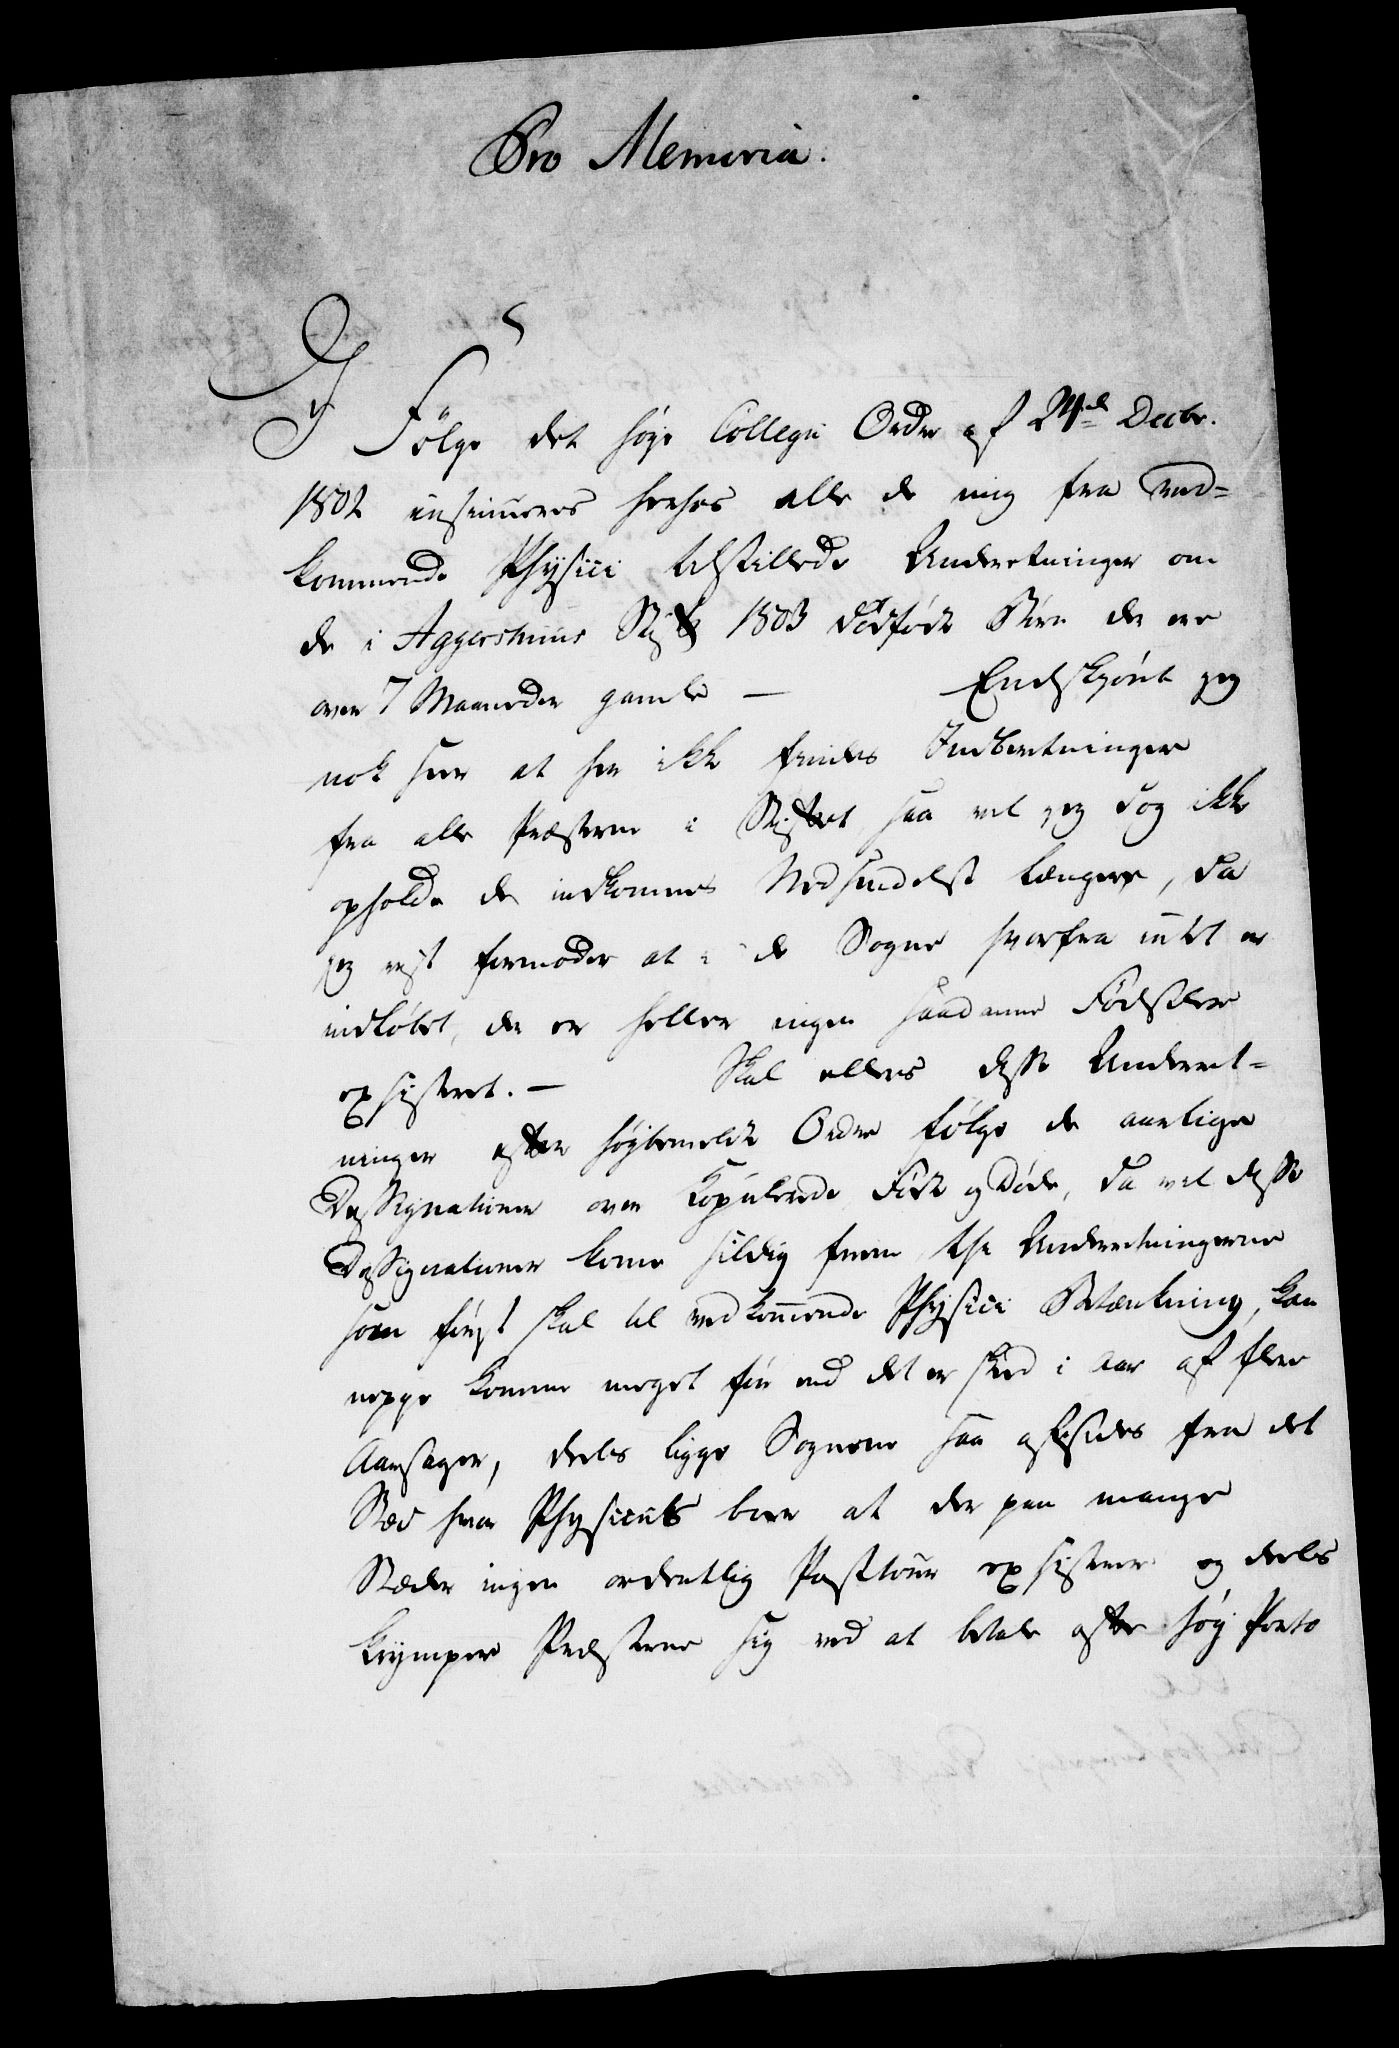 Pro Memoria.
I Følge det høye Collegii Ordre af 24de Decbr.
1802 insinueres herhos alle de mig fra ved-
kommende Physici tilstillede Underetninger om
de i Aggershuus Stift 1803 dødfødte Børn der ere
over 7 Maaneder gamle — Endskjønt jeg
nok seer at her ikke findes Indberetninger
fra alle Præsterne i Stiftet saa vil jeg dog ikke
opholde de indkomnes Nedsendelse længere, da
jeg vist formoder at i de Sogne hvorfra intet er
indløbet, der er heller ingen saadanne Fødseler
exsisteret. — Skal ellers disse Underret-
ninger efter høybemeldte Ordre følge de aarlige
Designationer over Copulerede Fødte og Døde, da vil disse
Designationer komme sildig frem, thi Underretningerne
som først skal til vedkommende Physici Betænkning, kan
neppe komme meget før end det er skeed i Aar af flere
Aarsager, deels ligge Sognene saa afsides fra det
Sted hvor Physicus boer at der paa mange
Stæder ingen ordentlig Posttour exsisterer og deels
krymper Præsterne sig ved at betale ofte høy Porto